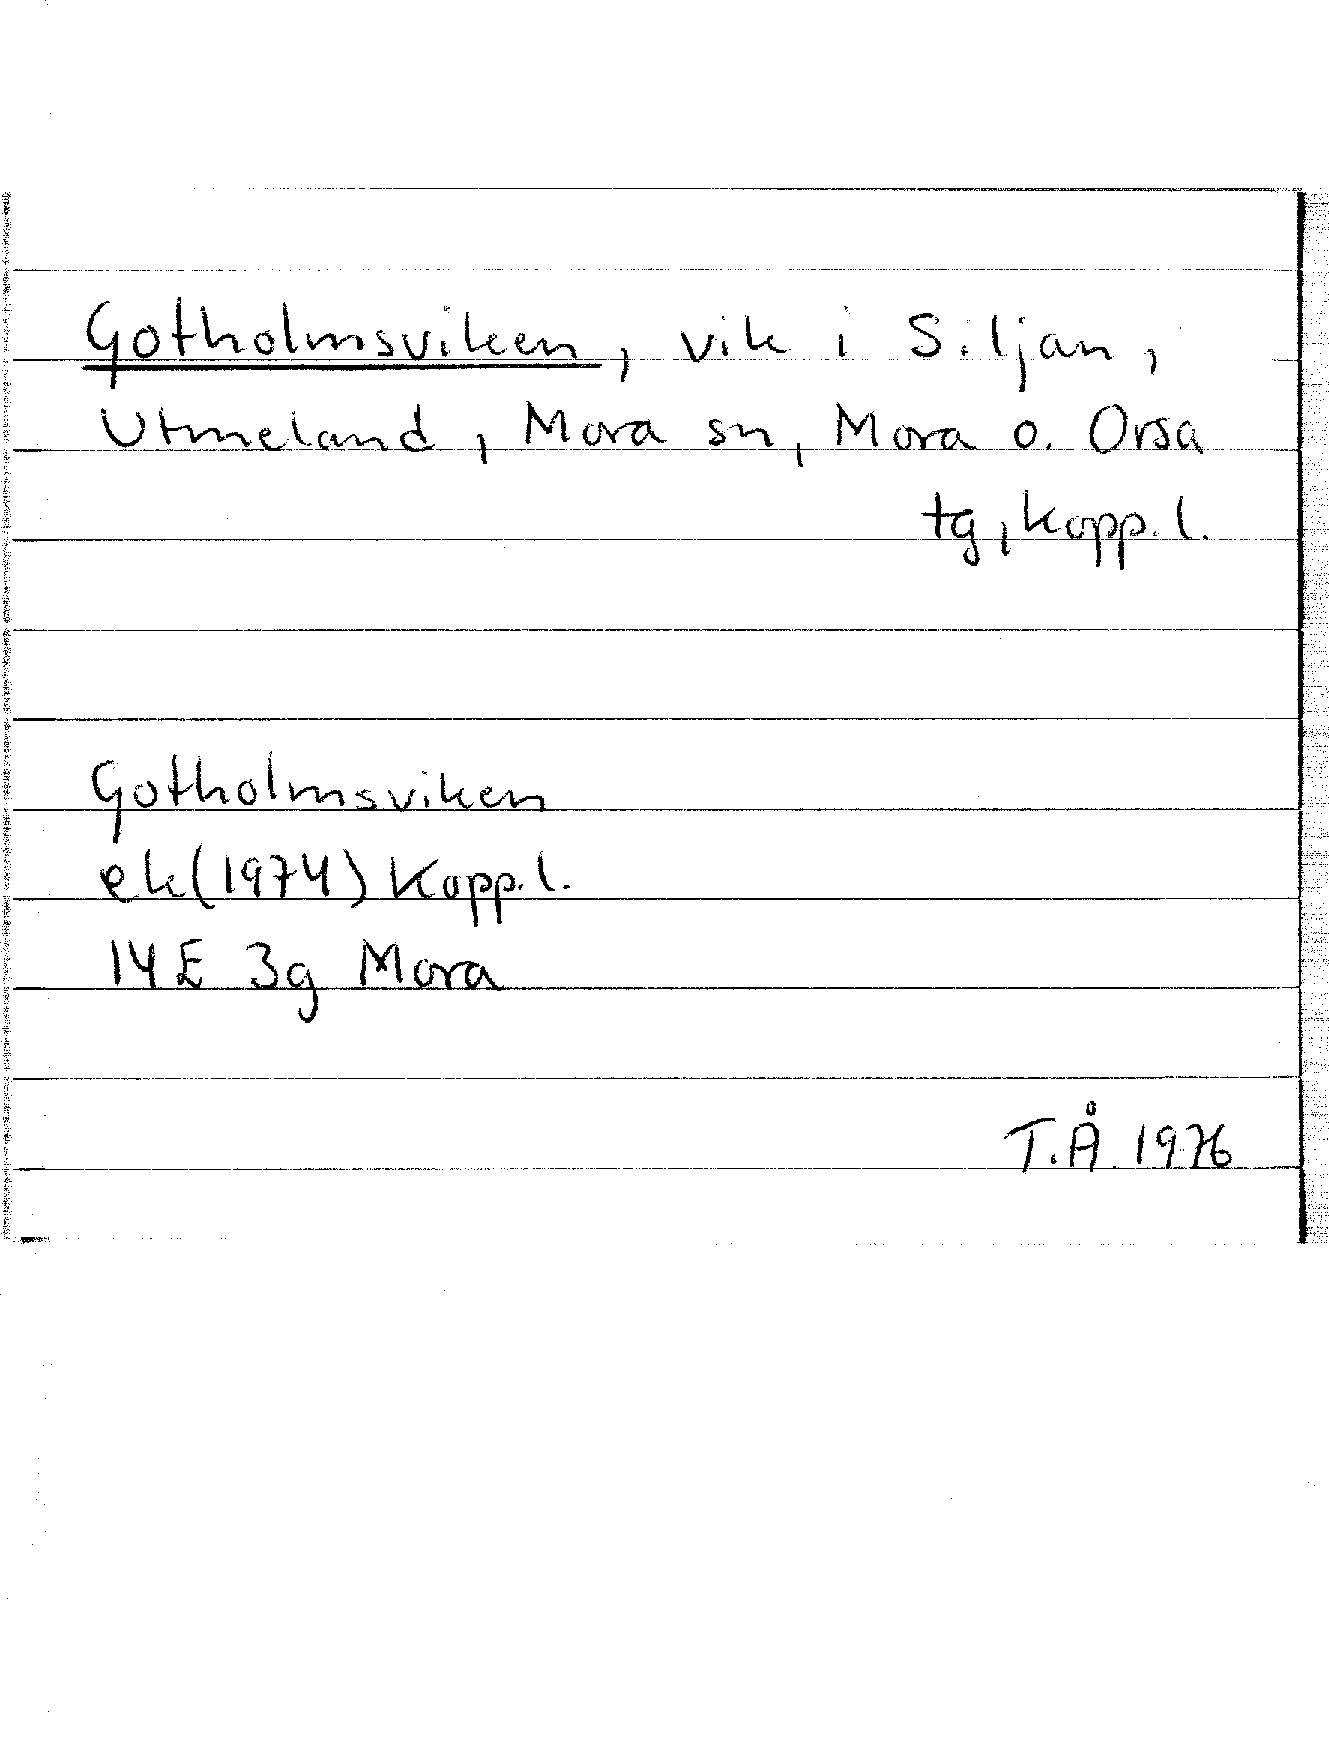 Gotholmsviken, vik i Siljan,
Utmeland, Mora sn, Mora o. Orsa
tg, Kopp. l.
Gotholmsviken
ek (1974) Kopp. l.
14E 3g Mora
T.Å 1976